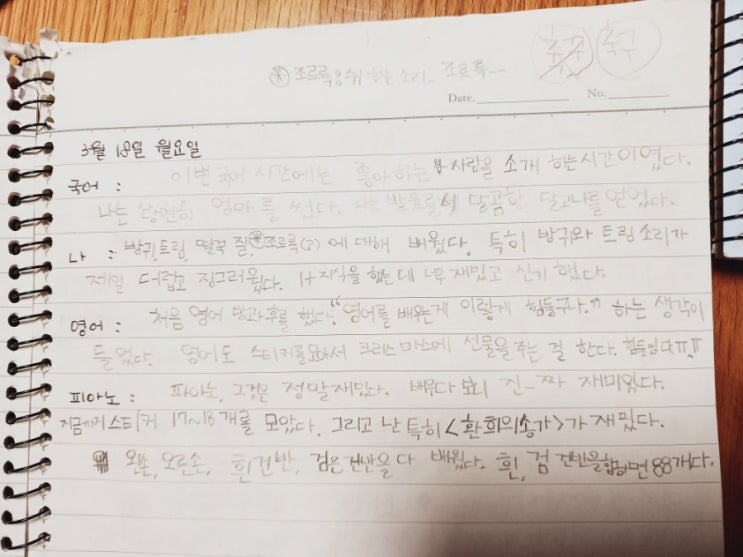 축구
축구
※ 조르륵 : 쉬 하는 소리.. 조르륵...
Date. No.
3월 18일 월요일
국어 : 이번 국어 시간에는 좋아하는 사람을 소개 하는 시간이었다.
나는 당연히 엄마를 썼다. 나는 발표를 해서 달콤한 달고나를 얻었다.
나 : 방귀, 트림, 딸꾹 질, ※조르륵(?) 에 대해 배웠다. 특히 방귀와 트림 소리가
제일 더럽고 징그러웠다. 1+지식을 했는 데 너무 재밌고 신기 했다.
영어 : 처음 영어 방과후를 했다. "영어를 배우는게 이렇게 힘들구나." 하는 생각이
들었다. 영어도 스티커를 모아서 크리스 마스에 선물을 주는 걸 한다. 힘들었다ㅠㅠ
피아노 : 피아노, 그것은 정말 재밌다. 배우다 보니 진~짜 재미있다.
지금까지 스티커 17~18개를 모았다. 그리고 난 특히 <환희의송가>가 재밌다.
왼손, 오른손, 흰건반, 검은 건반을 다 배웠다. 흰, 검 건반을 합하면 88개다.